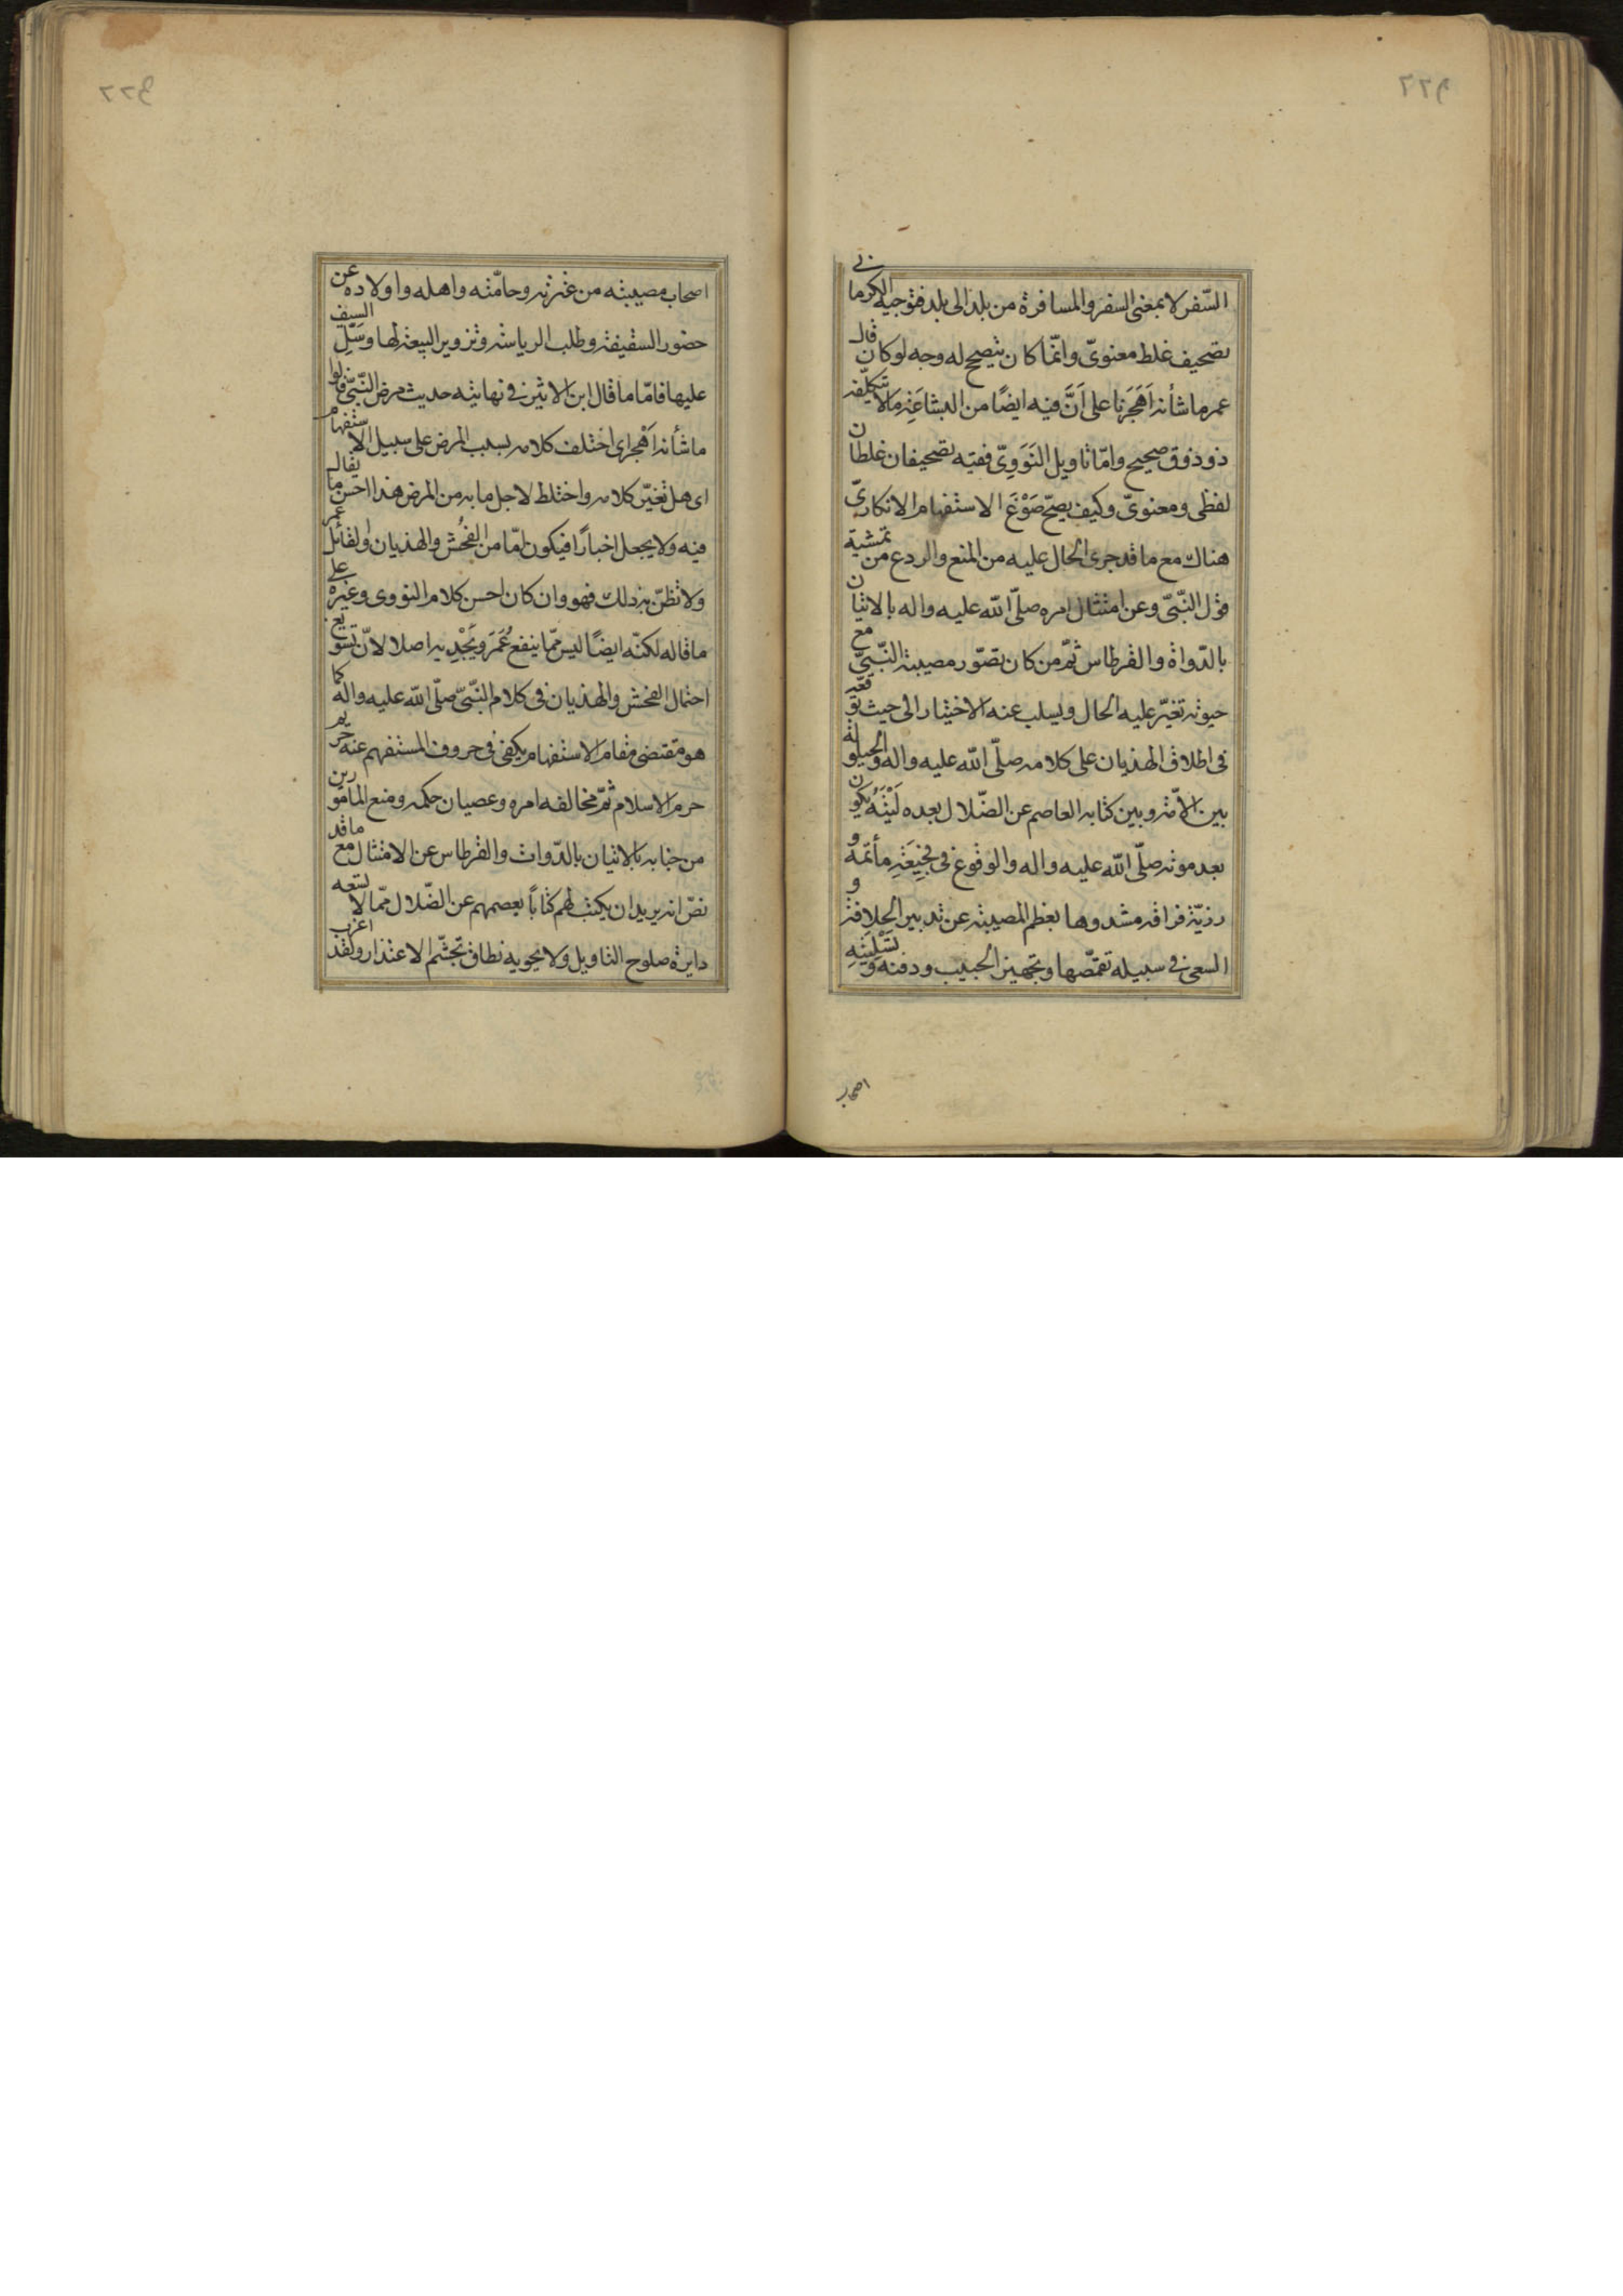 السّفر لا بمعنى السفر والمسافرة من بلد الى بلد فتوجيه الكرماني
تصحيف غلط معنويّ وانّما كان يتصحح له وجه لو كان قال
عمر ما شأنه اَهَجَرَنا على اَنَّ فيه ايضًا من البشاعَةِ مالا يتكلّفه
ذو ذوق صحيح وامّا تاويل النَوَوِىّ ففيه تصحيفان غلطان
لفظى ومعنوىّ وكيف يصحّ صَوْغَ الاستفهام الانكارىّ
هناك مع ما قد جرى الحال عليه من المنع والردع من تمشية
قول النّبىّ وعن امتثال امره صلّى الله عليه واله بالاتيان
بالدّواة والقرطاس ثمّ من كان تصّور مصيبة النّبىّ مع
حيوته تغيّر عليه الحال ويسلب عنه الاختيار الى حيث توقعه
فى اطلاق الهذيان على كلامه صلّى الله عليه واله والحيلولة
بين الامّة وبين كتابه العاصم عن الضّلال بعده لَيْتَهُ يكون
بعد موته صلّى الله عليه واله والوقوع فى فجيعَةِ مأتمه و
رزيّة فراقه مشدوها بعظم المصيبة عن تدبير الخلافة و
السعى فى سبيله تقمّصها وتجهيز الحبيب ودفنه و تسليته
اصحاب
اصحاب مصيبته من عترته وحامّته واهله واولاده عن
حضور السقيفة وطلب الرياسة وتزوير البيعة لها وسَلِّ السيف
عليها فامّا ما قال ابن الاثير فى نهايته حديث مرض النّبىّ قالوا
ما شأنه اَهْجر اى اختلف كلامه بسبب المرض على سبيل الاستفهام
اى هل تغيّر كلامه واختلط لاجل ما به من المرض هذا احسن ما يقال
فيه ولا يجعل اخبارًا فيكون امّا من الفُحْش والهذيان والقائل عمر
ولا تظنّ به ذلك فهو وان كان احسن كلام النووى وغيره على
ما قاله لكنّه ايضًا ليس ممّا ينفع عُمَرَ ويُجْدِيه اصلا لانّ تسويغ
احتمال الفحش والهذيان فى كلام النّبىّ صلّى الله عليه واله كما
هو مقتضى مقام الاستفهام يكفى فى حروف المستفهم عنه حريم
حرم الاسلام ثمّ مخالفه امره وعصيان حكمه ومنع المامورين
من جنابه بالاتيان بالدّوات والقرطاس عن الامتثال مع ما قد
نصّ انه يريد ان يكتب لهم كتابًا يعصمهم عن الضّلال ممّا لا يسعه
دايرة صلوح التاويل ولا يحويه نطاق تجشّم الاعتذار ولقد اغرب